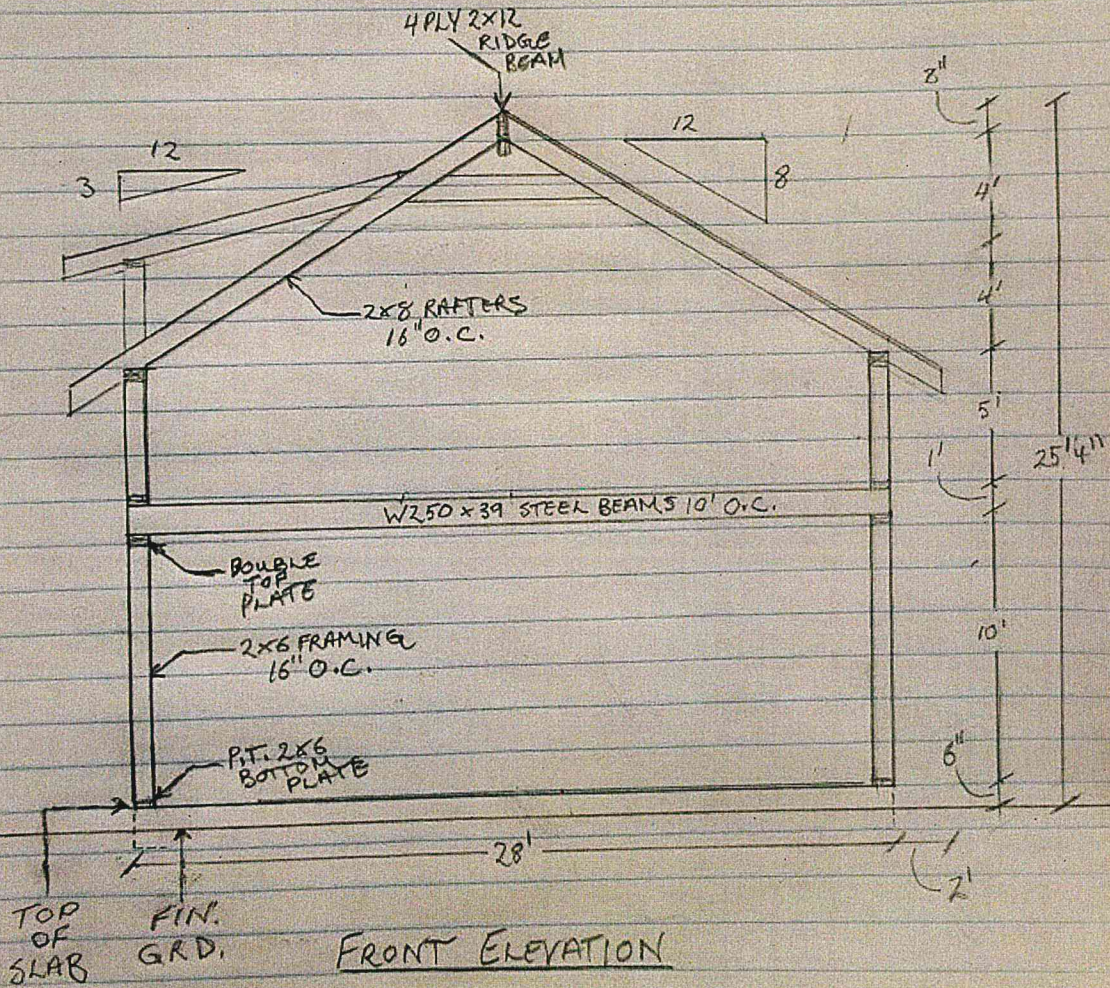 4 PLY 2x12
RIDGE
BEAM
8"
12
3
12
8
4'
4'
2x8 RAFTERS
16" O.C.
5'
1'
25'4"
W250 x 39 STEEL BEAMS 10' O.C.
DOUBLE
TOP
PLATE
10'
2x6 FRAMING
16" O.C.
P.T. 2x6
BOTTOM
PLATE
6"
28'
2'
TOP
OF
SLAB
FIN.
GRD.
FRONT ELEVATION